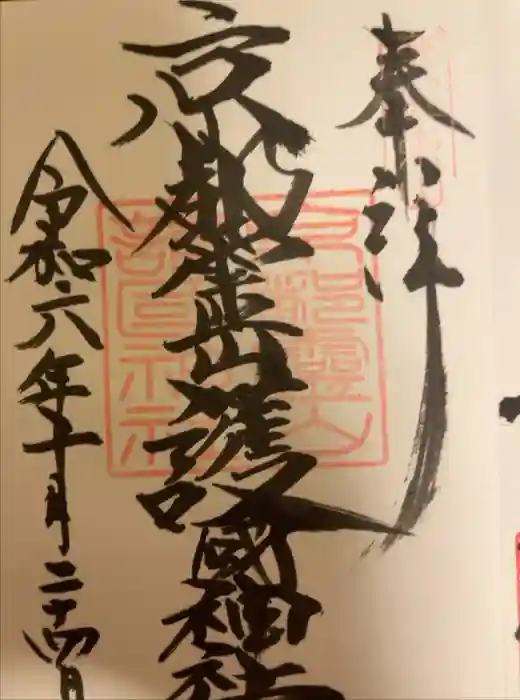 奉拝
京都霊山護國神社
令和六年十月二十四日